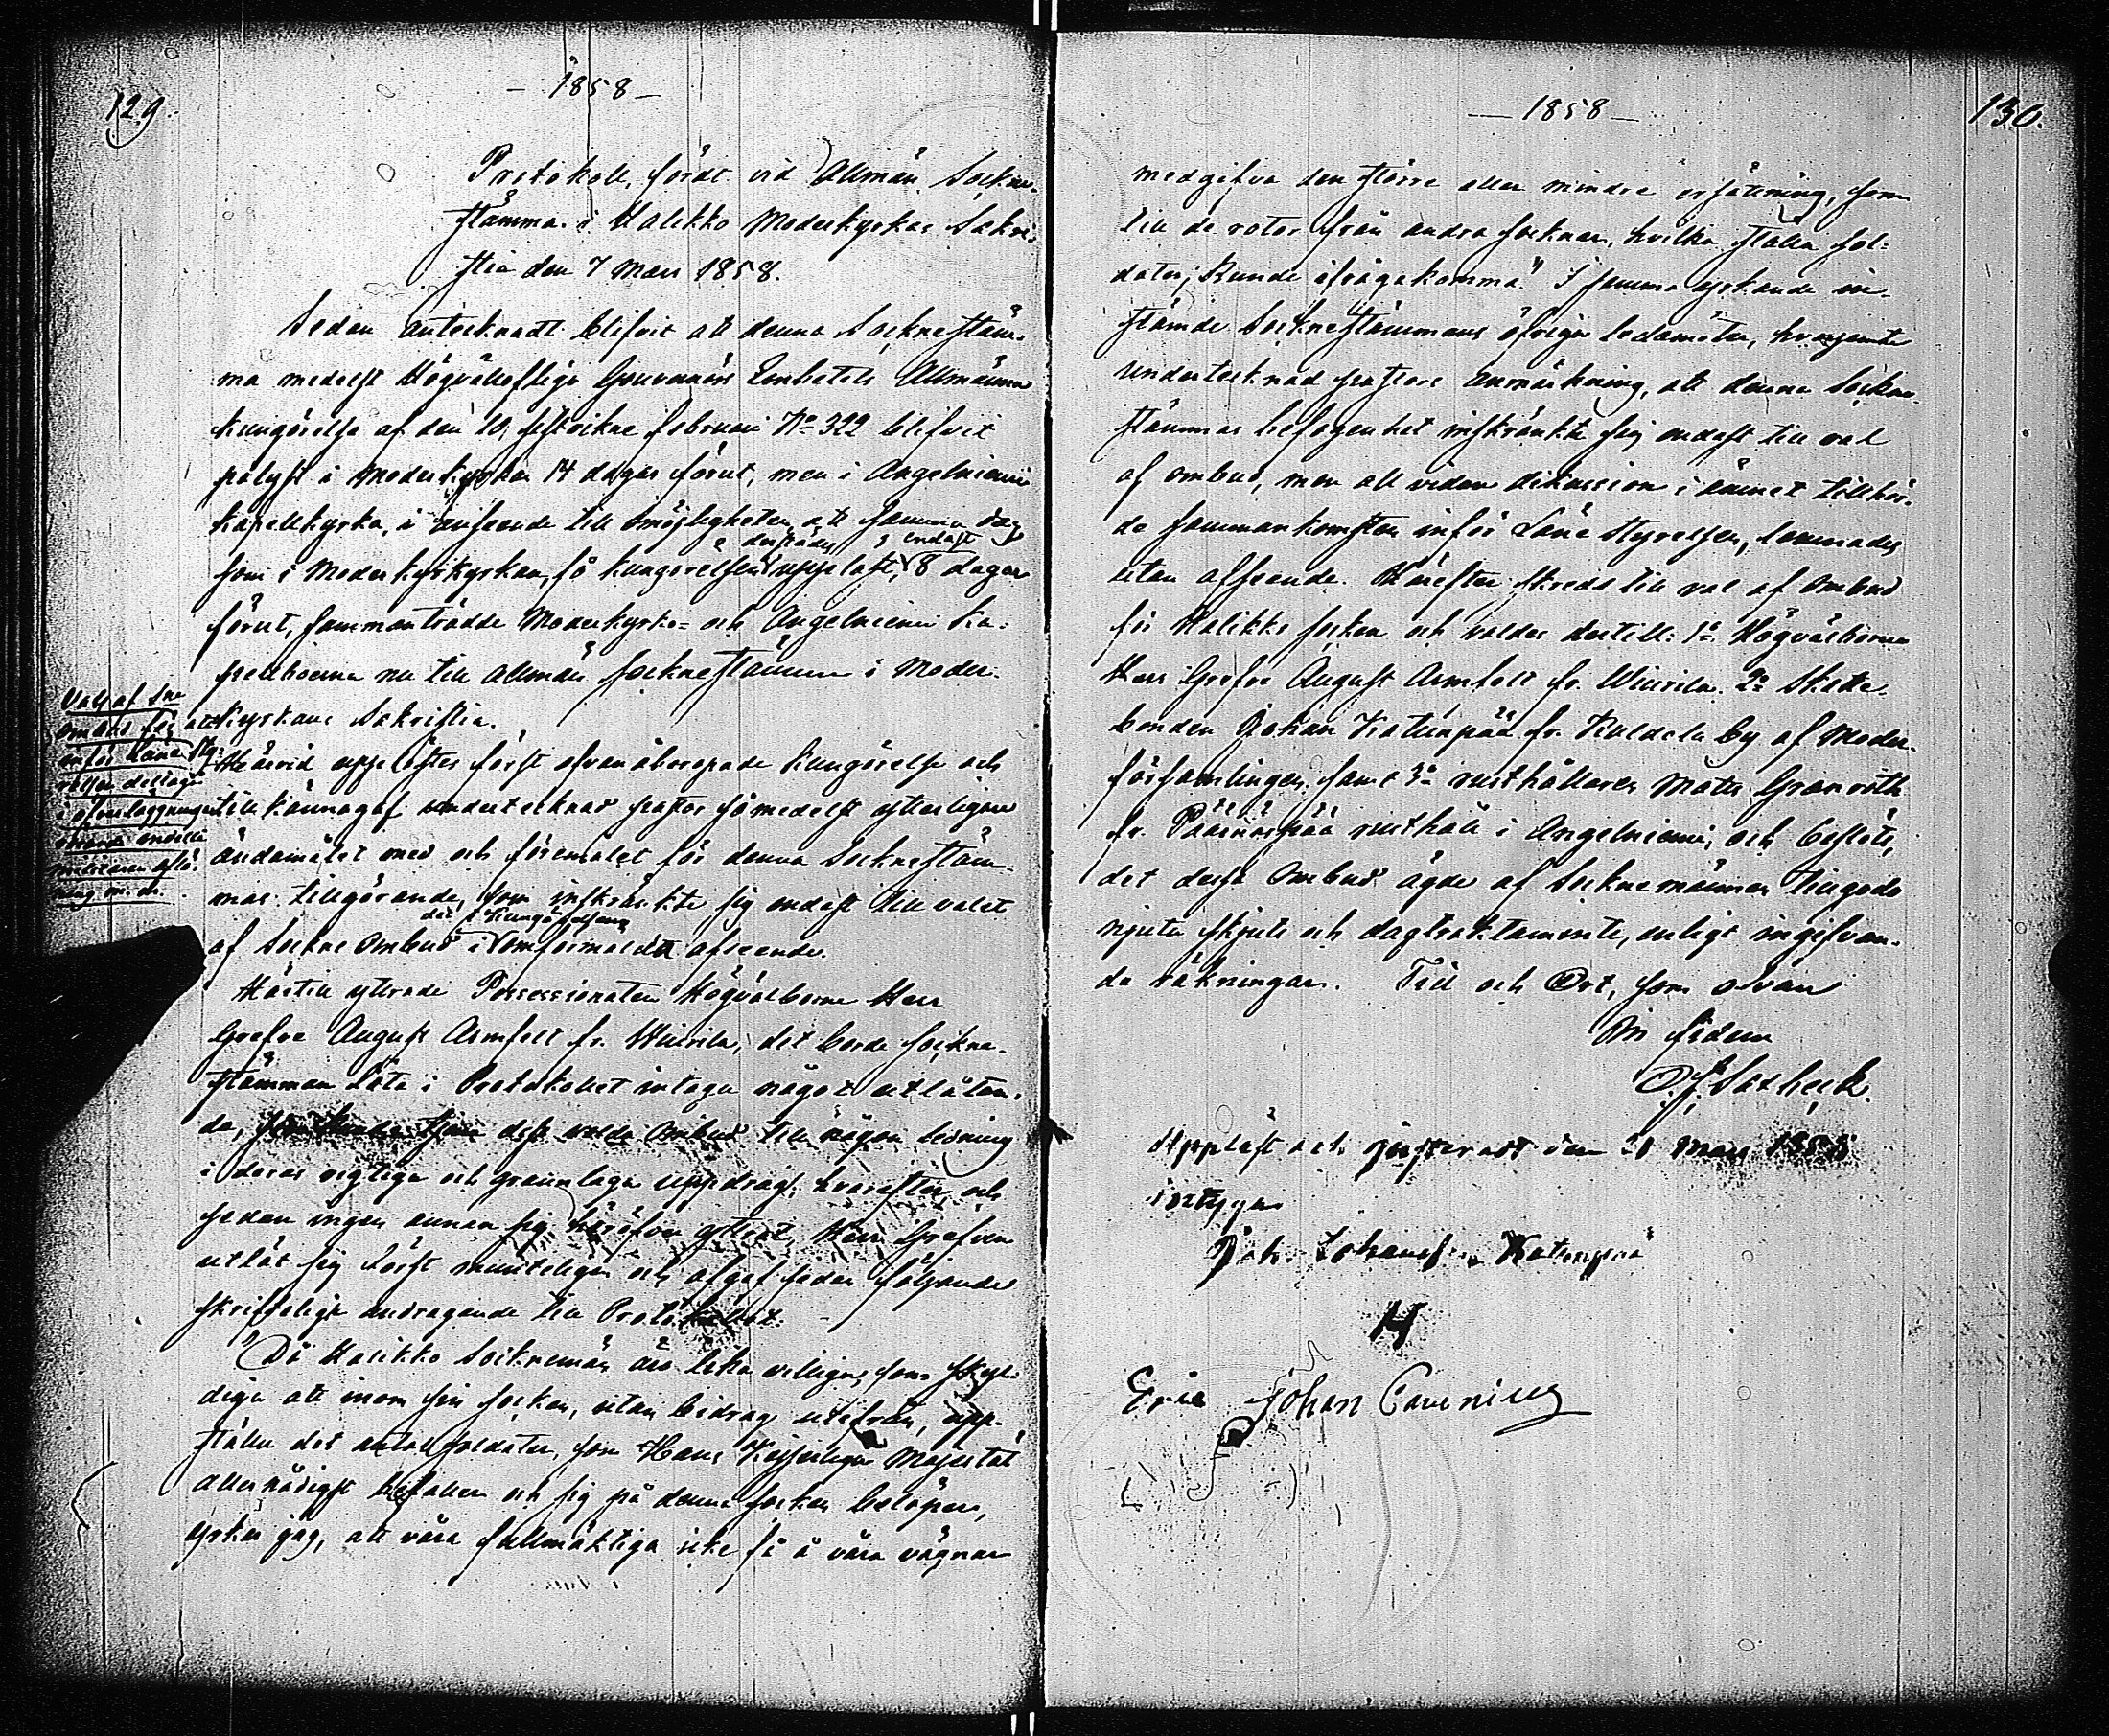 129.
- 1858 -
Protokoll, fördt vid Allmän Sockne-
stämma i Halikko Moderkyrkas Sakri-
stia den 7 Mars 1858.
Sedan antecknadt blifvit att denna Socknestäm-
ma medelst Högvälloflige Gouvernörs Embetets Allmänna
kungörelse af den 10 sistvikne Februari No 322 blifvit
pålyst i Moderkyrkan 14 dagar förut, men i Angelniemi
Kapellkyrka, i anseende till omöjligheten att samma dag
som i Moderkyrkan, få kungörelsen derstädes uppläst, endast 8 dagar
förut, sammanträdde Moderkyrko- och Angelniemi Ka-
pellboerne nu till allmän socknestämma i Moder-
kyrkans Sakristia.
Val af 3ne
Ombud för att
inför Läne Sty-
relsen deltaga
i öfverläggningen
rörande indelta
militärens aflö-
ning m.m.
Härvid upplästes först ofvanåberopade kungörelse och
tillkännagaf undertecknad pastor såmedelst ytterligare
ändamålet med och föremålet för denna Socknestäm-
mas tillgörande, som inskränkte sig endast till valet
af Sockne Ombud i det i kungörelsen omförmälda afseende.
Härtill yttrade Possessionaten Högvälborne Herr
Grefve August Armfelt fr. Wiurila, det borde sockne-
stämman låta i Protokollet intaga något utlåtan-
de, som kunde tjena dess valde Ombud till någon ledning
i deras vigtiga och grannlaga uppdrag; hvarefter och
sedan ingen annan sig häröfver yttrat, Herr Grefven
utlät sig först munteligen och afgaf sedan följande
skriftelige andragande till Protokollet:
"Då Halikko Socknemän äro lika villige som skyl-
dige att inom sin socken, utan bidrag utifrån, upp-
ställa det antal soldater, som Hans Kejserliga Majestät
allernådigst befaller och sig på denna socken belöper,
yrkar jag, att våra fullmäktiga icke få å våra vägnar
- 1858 -
130.
medgifva den större eller mindre ersättning, som
till de rotor från andra socknar, hvilka ställa sol-
dater, kunde ifrågakomma." I samma yrkande in-
stämde Socknestämmans öfriga ledamöter, hvarjemte
undertecknad pastors anmärkning, att denna Sockne-
stämmas befogenhet inskränkte sig endast till val
af ombud, men all vidare diskussion i ämnet tillhör-
de sammankomsten inför Läne Styrelsen, lemnades
utan afseende. Härefter skreds till val af Ombud
för Halikko socken och valdes dertill: 1o Högvälborne
Herr Grefve August Armfelt fr. Wiurila. 2o Skatte-
bonden Johan Katunpää fr. Kuldela by af Moder-
församlingen, samt 3o rusthållaren Mats Granroth
fr. Päärnäspää rusthåll i Angelniemi, och beslöts,
det desse Ombud ägde af Socknemännen tillgodo
njuta skjuts och dagtraktamente, enligt ingifvan-
de räkningar. Tid och Ort, som ofvan
In fidem
Uppläst och justeradt den 21 Mars 1858
intyga
Joh. Johansson Katunpää
Eric Johan Cavenius